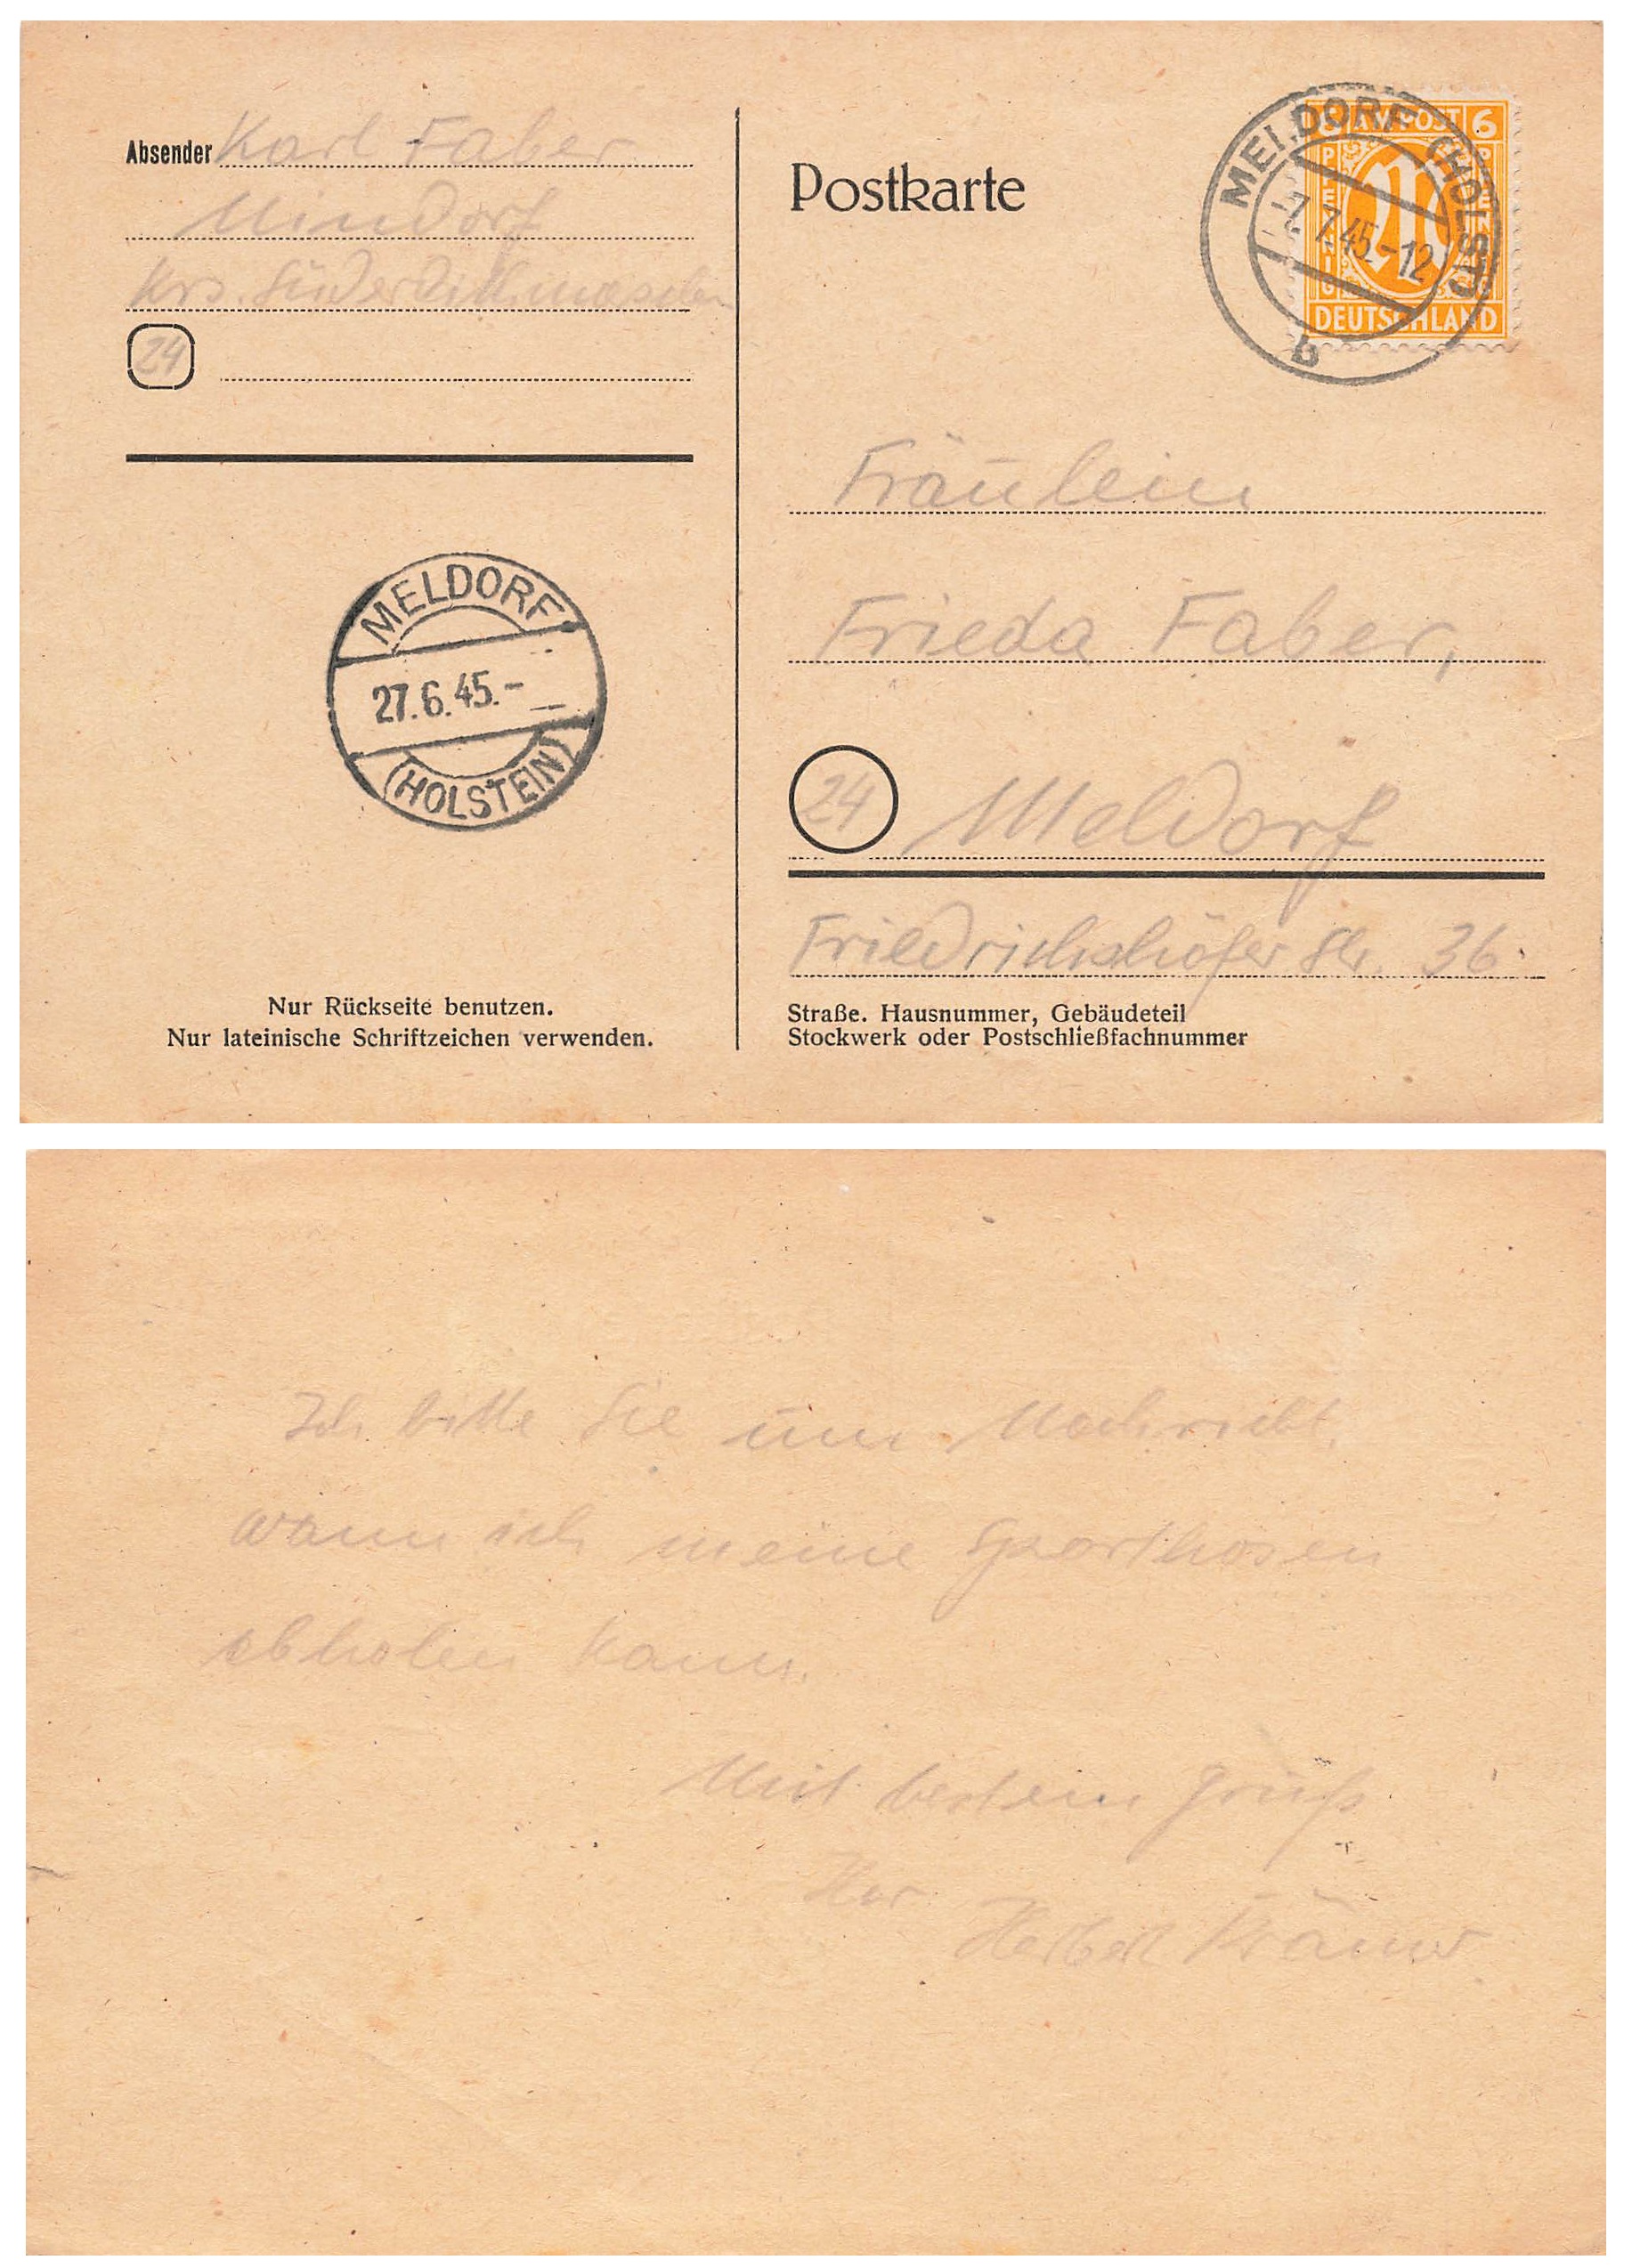 Absender Karl Faber
Nindorf
Krs. Süderdithmarschen
24
MELDORF
27.6.45.-
(HOLSTEIN)
Nur Rückseite benutzen.
Nur lateinische Schriftzeichen verwenden.
Postkarte
6 AM POST 6
PFENNIG PFENNIG
M
DEUTSCHLAND
MELDORF (HOLST)
-7.7.45.-12
b
Fräulein
Frieda Faber,
24 Meldorf
Friedrichshöfer Str. 36.
Straße. Hausnummer, Gebäudeteil
Stockwerk oder Postschließfachnummer
Ich bitte Sie um Nachricht,
wann ich meine Sporthosen
abholen kann.
Mit bestem Gruß
Herbert Krämer